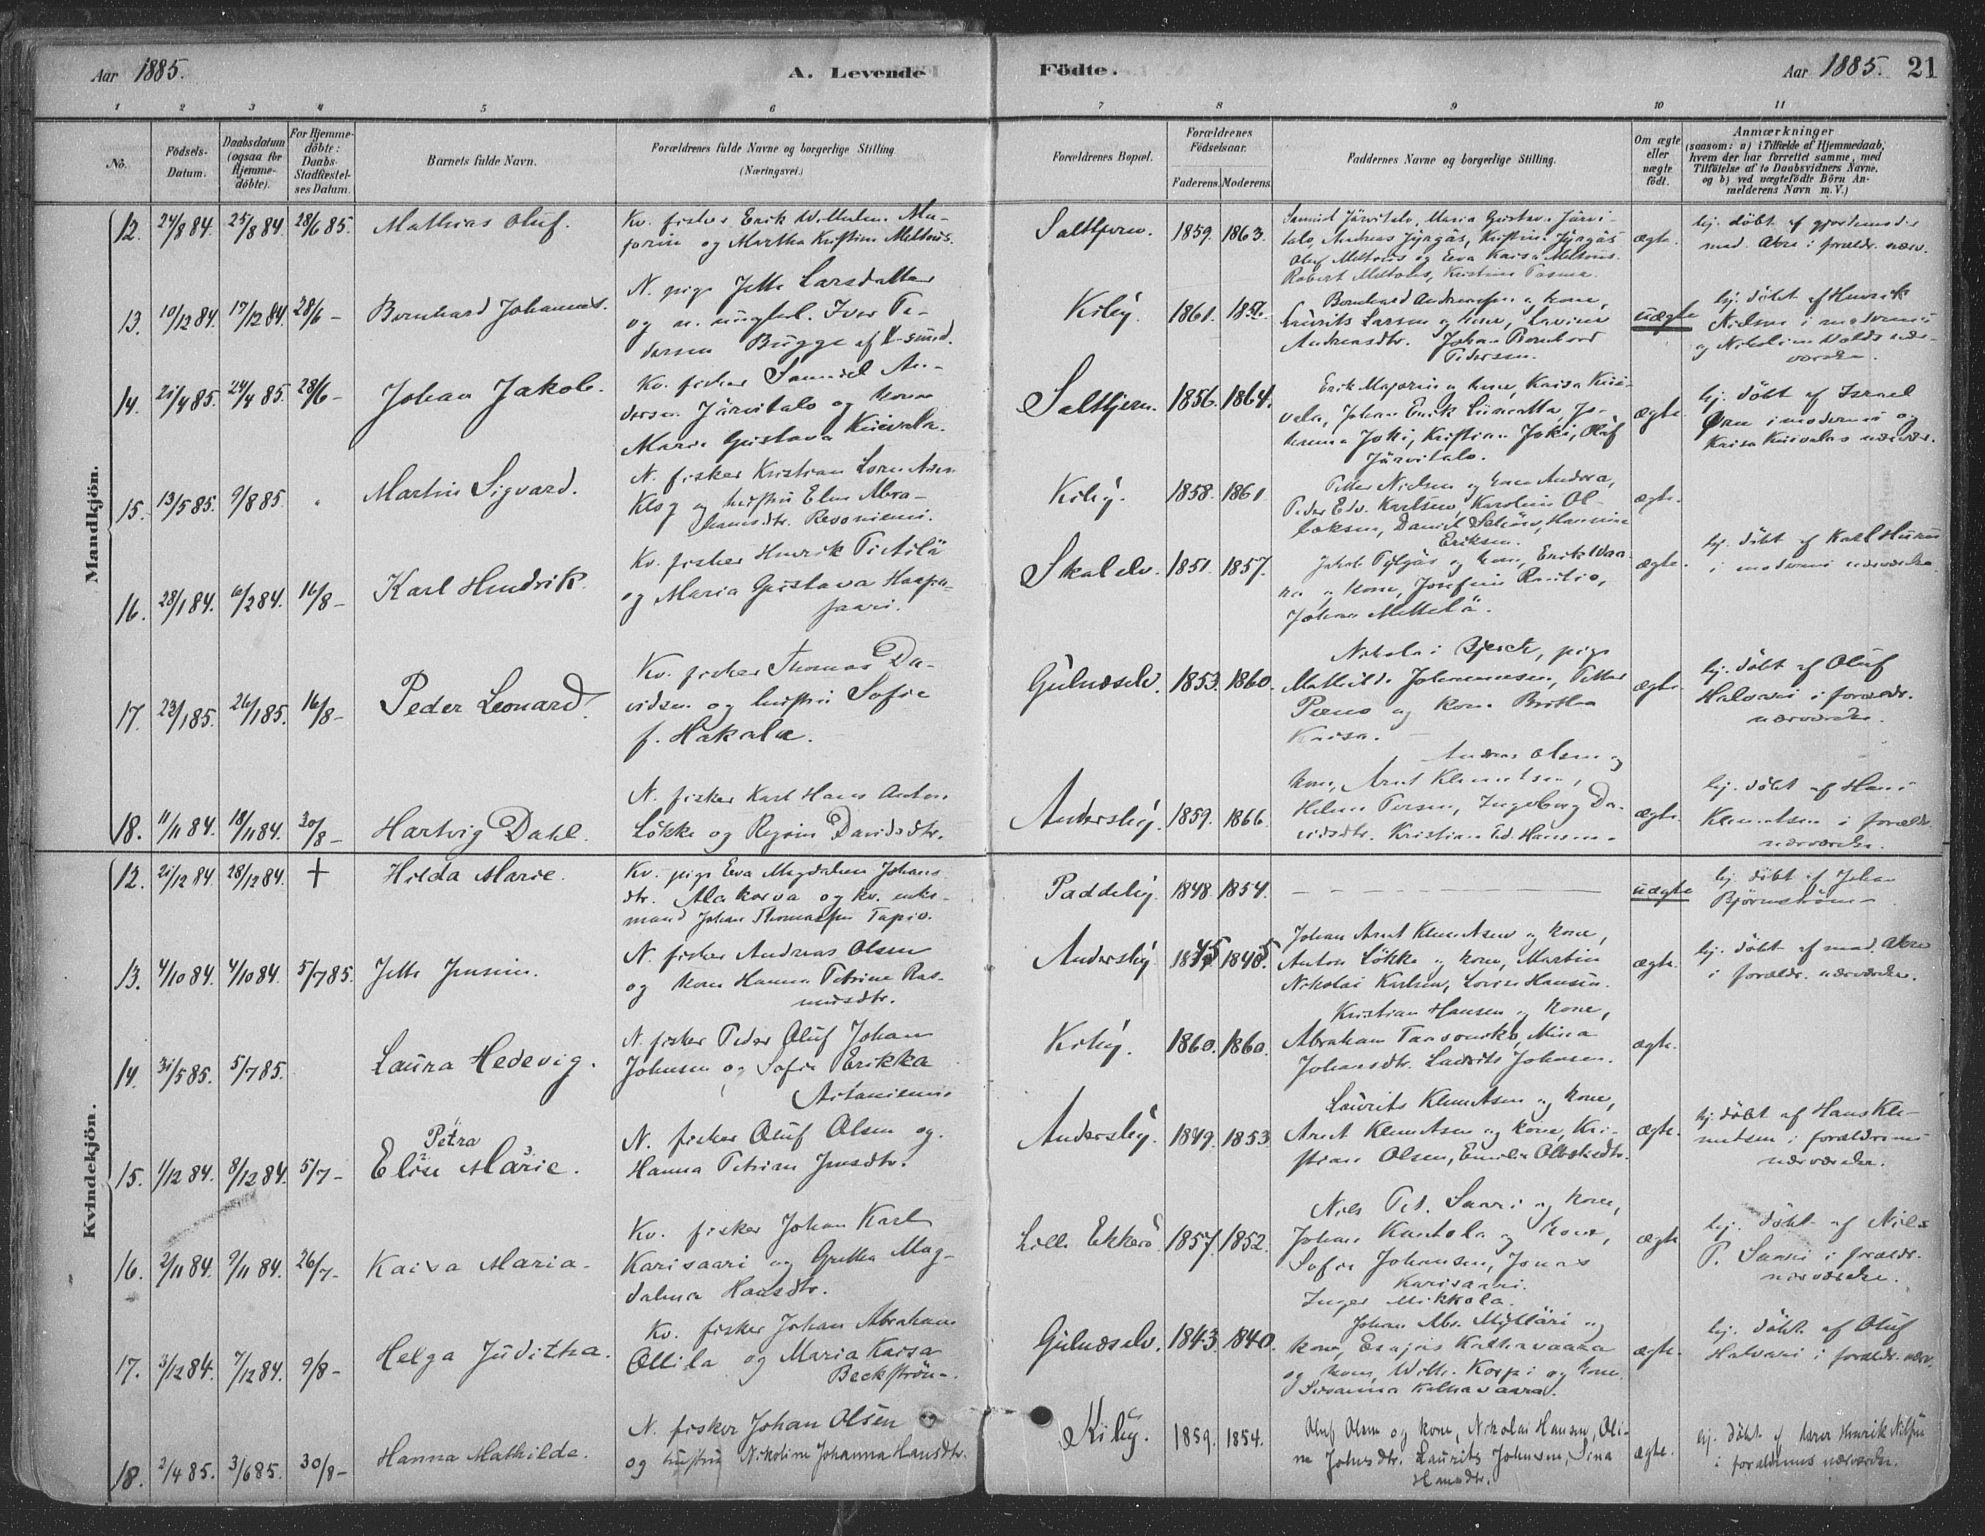 Aar 1885.
A. Levende
Födte.
Aar 1885. 21
1 2 3 4 5 6 7 8 9 10 11
No.
Födsels-
Datum.
Daabsdatum
(ogsaa for
Hjemme-
döbte).
For Hjemme-
döbte:
Daabs-
Stadfæstel-
ses Datum.
Barnets fulde Navn.
Forældrenes fulde Navne og borgerlige Stilling
(Næringsvei.)
Forældrenes Bopæl.
Forældrenes
Födselsaar.
Faderens. Moderens.
Faddernes Navne og borgerlige Stilling.
Om ægte
eller
uægte
födt.
Anmærkninger
(saasom: a) i Tilfælde af Hjemmedaab,
hvem der har forrettet samme, med
Tilföielse af to Daabsvidners Navne,
og b) ved uægtefödte Börn An-
melderens Navn m. V.)
Mandkjön.
12. 24/8 84. 25/8 84. 28/6 85. Mathias Oluf.
Kv. fisker Erik Wilhelm Ma-
jorin og Martha Kristine Meltous.
Saltfjern. 1859. 1863.
Samuel Järvitalo, Maria Gustava Järvi-
talo, Andreas Jyrgäs, Kristine Jyrgäs
Oluf Meltous og Eva Kaisa Meltous.
Robert Meltous, Kristine
ægte.
hj. döbt af gjordemoder
mad. Akre i forældr. nærv.
13. 10/12 84. 17/12 84. 28/6 – Bernhard Johannes.
N. pige Jette Larsdatter
og n. ungkl. Iver Pe-
dersen Bugge af
Kiby. 1861. 1856.
Bernhard Andreassen og kone,
Laurits Larsen og kone, Lavine
Andreasdtr. Johan Bernhard
Pedersen.
uægte
hj. döbt af Henrik
Nielsen i moderens
og Nikoline
værelse.
14. 21/4 85. 24/4 85. 28/6 – Johan Jakob.
Kv. fisker Samuel An-
dersen Järvitalo og kone
Maria Gustava Kinvala.
Saltfjern. 1856. 1864.
Erik Majorin og kone, Kaisa Kini-
vala, Johan Erik Liimatta, Jo-
hanna Joki, Kristian Joki, Oluf
Järvitalo.
ægte.
hj. döbt af Israel
Örn i moderens og
Kaisa Kinvalas nærvær.
15. 13/5 85. 9/8 85. " Martin Sigvard.
N. fisker Kristian Lorn
Klog og hustru Elen Abra-
hamsdtr. Revoniemi.
Kiby. 1858. 1861.
Petter Nielsen og kone Andrea,
Peder Edv. Karlsen, Karoline Ol-
Daniel Hansine
Eriksen.
ægte.
16. 28/1 84. 6/2 84. 16/8 – Karl Hendrik.
Kv. fisker Henrik Pietilä
og Maria Gustava Haapa-
saari.
Skalelv. 1851. 1857.
Jakob Erik
og kone, Josefine
Johan Mettelä.
ægte.
hj. döbt af Karl
i moderens nærværelse.
17. 23/1 85. 26/1 85. 16/8 – Peder Leonard.
Kv. fisker Thomas Da-
vidsen og hustru Sofie
f. Hakala.
Gulnæselv. 1853. 1860.
Nikolai Bjerck, pige
Mathilde Johannessen, Petter
og kone Britha
Kaisa.
ægte.
hj. döbt af Oluf
Halvari i forældr.
nærværelse.
18. 11/11 84. 18/11 84. 30/8 – Hartvig Dahl.
N. fisker Karl Hans Anton
Lökke og Regine Davidsdtr.
Andersby. 1859. 1866.
Andreas Olsen og
kone, Arnt Klemetsen,
Helene Persen, Ingeborg Da-
vidsdtr. Kristian Ed. Hansen.
ægte.
hj. döbt af Hans
Klemetsen i forældr.
nærværelse.
Kvindekjön.
12. 21/12 84. 28/12 84. + Hilda Marie.
Kv. pige Eva Magdalena Johans
dtr. Alakorva og kv. enke-
mand Johan Thomassen Tapio.
Paddeby. 1848. 1854.
– – – – – –
uægte
hj. döbt af Johan
Björnström
13. 4/10 84. 4/10 84. 5/7 85. Jette Jensine.
N. fisker Andreas Olsen
og kone Hanna Petrine Ras-
musdtr.
Andersby. 1845. 1845.
Johan Arnt Klemetsen og kone,
Anton Lökke og kone, Martin
Nikolai Karlsen, Lovise Hansen.
ægte.
hj. döbt af mad. Akre
i forældr. nærværelse.
14. 31/5 85. 5/7 85. Laura Hedevig.
N. fisker Peder Oluf Johan
Johnsen og Sofie Erikka
Aitaniemi.
Kiby. 1860. 1860.
Kristian Hansen og kone,
Abraham Mina
Johansdtr. Laurits Johnsen.
ægte.
15. 1/12 84. 8/12 84. 5/7 – Elise Petra Marie.
N. fisker Oluf Olsen og
Hanna Petrine Jensdtr.
Andersby. 1849. 1853
Laurits Klemetsen og kone,
Arnt Klemetsen og kone, Kri-
stian Olsen, Emilie
ægte.
hj. döbt af Hans Kle-
metsen i forældrenes
nærværelse.
16. 2/11 84. 9/11 84. 26/7 – Kaisa Maria.
Kv. fisker Johan Karl
Karisaari og Gretha Mag-
dalena Hansdtr.
Lille Ekkerö. 1857. 1852.
Niels Pet. Saari og kone,
Johan Kantola og kone,
Sofie Johansen, Jonas
Karisaari.
Inger Mikkola.
ægte
hj. döbt af Niels
P. Saari i forældr.
nærværelse.
17. 3/12 84. 7/12 84. 9/8 – Helga Juditha.
Kv. fisker Johan Abraham
Ollila og Maria Kaisa
Beckström.
Gulnæselv. 1843. 1840.
Johan Abr. Mylläri og
kone, Esajas Kathavaara
og kone, Wilh. Korpi og kone
Susanna Kathavaara.
ægte.
hj. döbt af Oluf
Halvari i forældr. nærv.
18. 2/4 85. 3/6 85. 30/8 – Hanna Mathilde.
N. fisker Johan Olsen
og hustru Nikoline Johanna Hansdtr.
Kiby. 1859. 1854.
Oluf Olsen og kone, Nikolai Hansen, Oli-
ne Johnsdtr. Laurits Johnsen, Sina
Hansdtr.
ægte.
hj. döbt af lærer Henrik Nilsen
i forældrenes nærværelse.